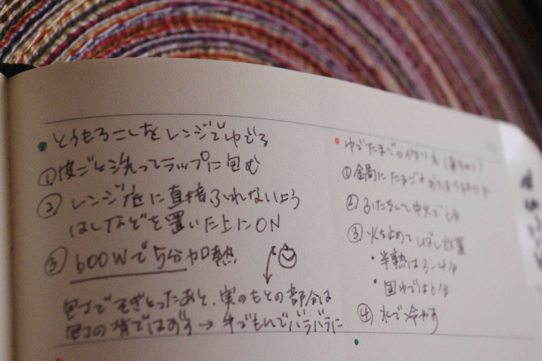 とうもろこしをレンジでゆでる
①皮ごと洗ってラップに包む
② レンジ底に直接ふれないよう
はしなどを置いた上にON
③ 600Wで5分加熱
包丁でそぎとったあと、実のもとの部分は
包丁の背ではずす → 手でもんでバラバラに
ゆでたまごの作り方
①鍋にたまご
② ふたをして中火で
③ 火を止めてしばし放置
・半熟は3〜4分
・固ゆでは
④ 水で冷やす